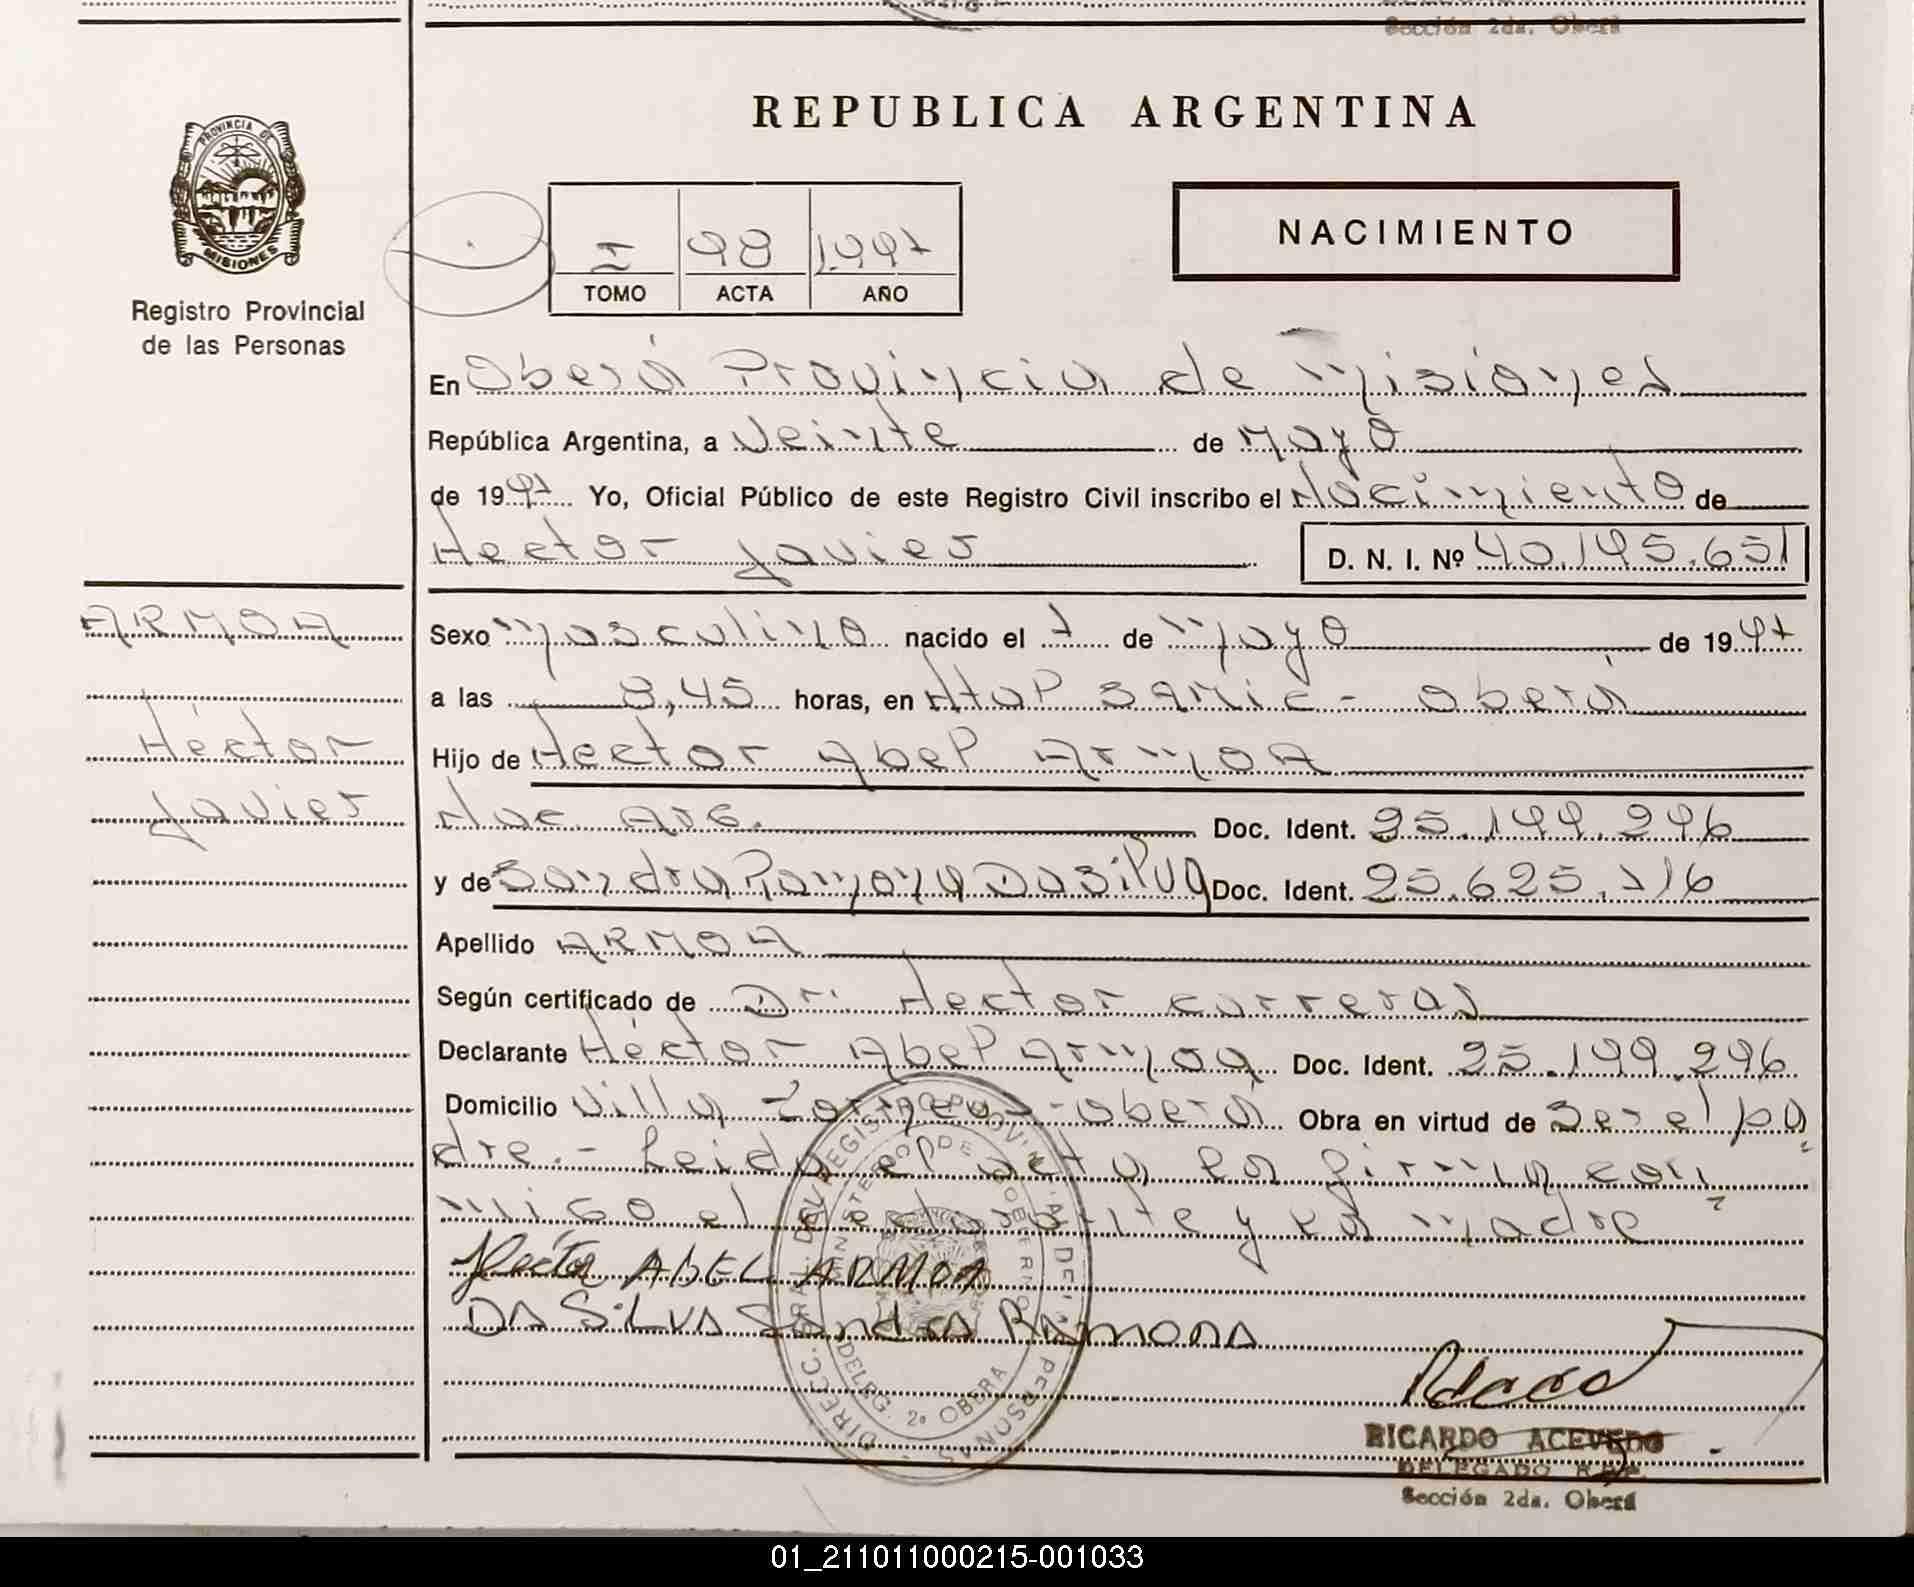 Sección 2da. Oberá
REPUBLICA ARGENTINA
PROVINCIA DE
MISIONES
Registro Provincial
de las Personas
I 98 1.997
TOMO ACTA AÑO
NACIMIENTO
En Oberá Provincia de Misiones
República Argentina, a Veinte de Mayo
de 1997 Yo, Oficial Público de este Registro Civil inscribo el Nacimiento de
Hector Javier D. N. I. Nº 40.195.651
ARMOA
Héctor
Javier
Sexo Masculino nacido el 7 de Mayo de 1997
a las 8,45 horas, en Htal SAMIC - Oberá
Hijo de Hector Abel ArmoA
Nac. Arg. Doc. Ident. 25.199.296
y de Sandra Ramona Da Silva Doc. Ident. 25.625.116
Apellido ARMOA
Según certificado de Dr. Hector Carreras
Declarante Héctor Abel Armoa Doc. Ident. 25.199.296
Domicilio Villa - Oberá Obra en virtud de Ser el pa
dre.- Leida el acta la firma con
migo el declarante y la madre
Hector ABEL ARMOA
DA SiLVA Sandra RAMONA
DIRECC. GRAL. DEL REGISTRO PROV. DE PERSONAS
MINISTERIO DE GOBIERNO
DELEG. 2º OBERA
RICARDO ACEVEDO
DELEGADO R.P.P.
Sección 2da. Oberá
01_211011000215-001033